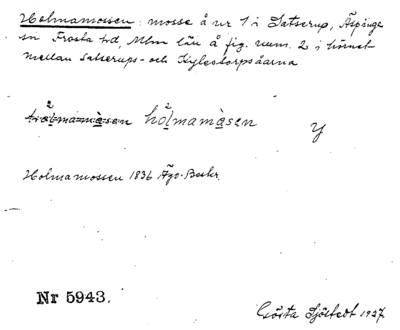 Holmamossen: mosse å nr 1 i Satserup, Äspinge
sn Frosta hd, Mlm län å fig. num. 2 i hörnet
mellan Satserups- och Kylestorpsåarna
hólmamåsen
y
Holmamossen 1836 Ägo-Beskr.
Nr 5943.
Gösta Sjöstedt 1927